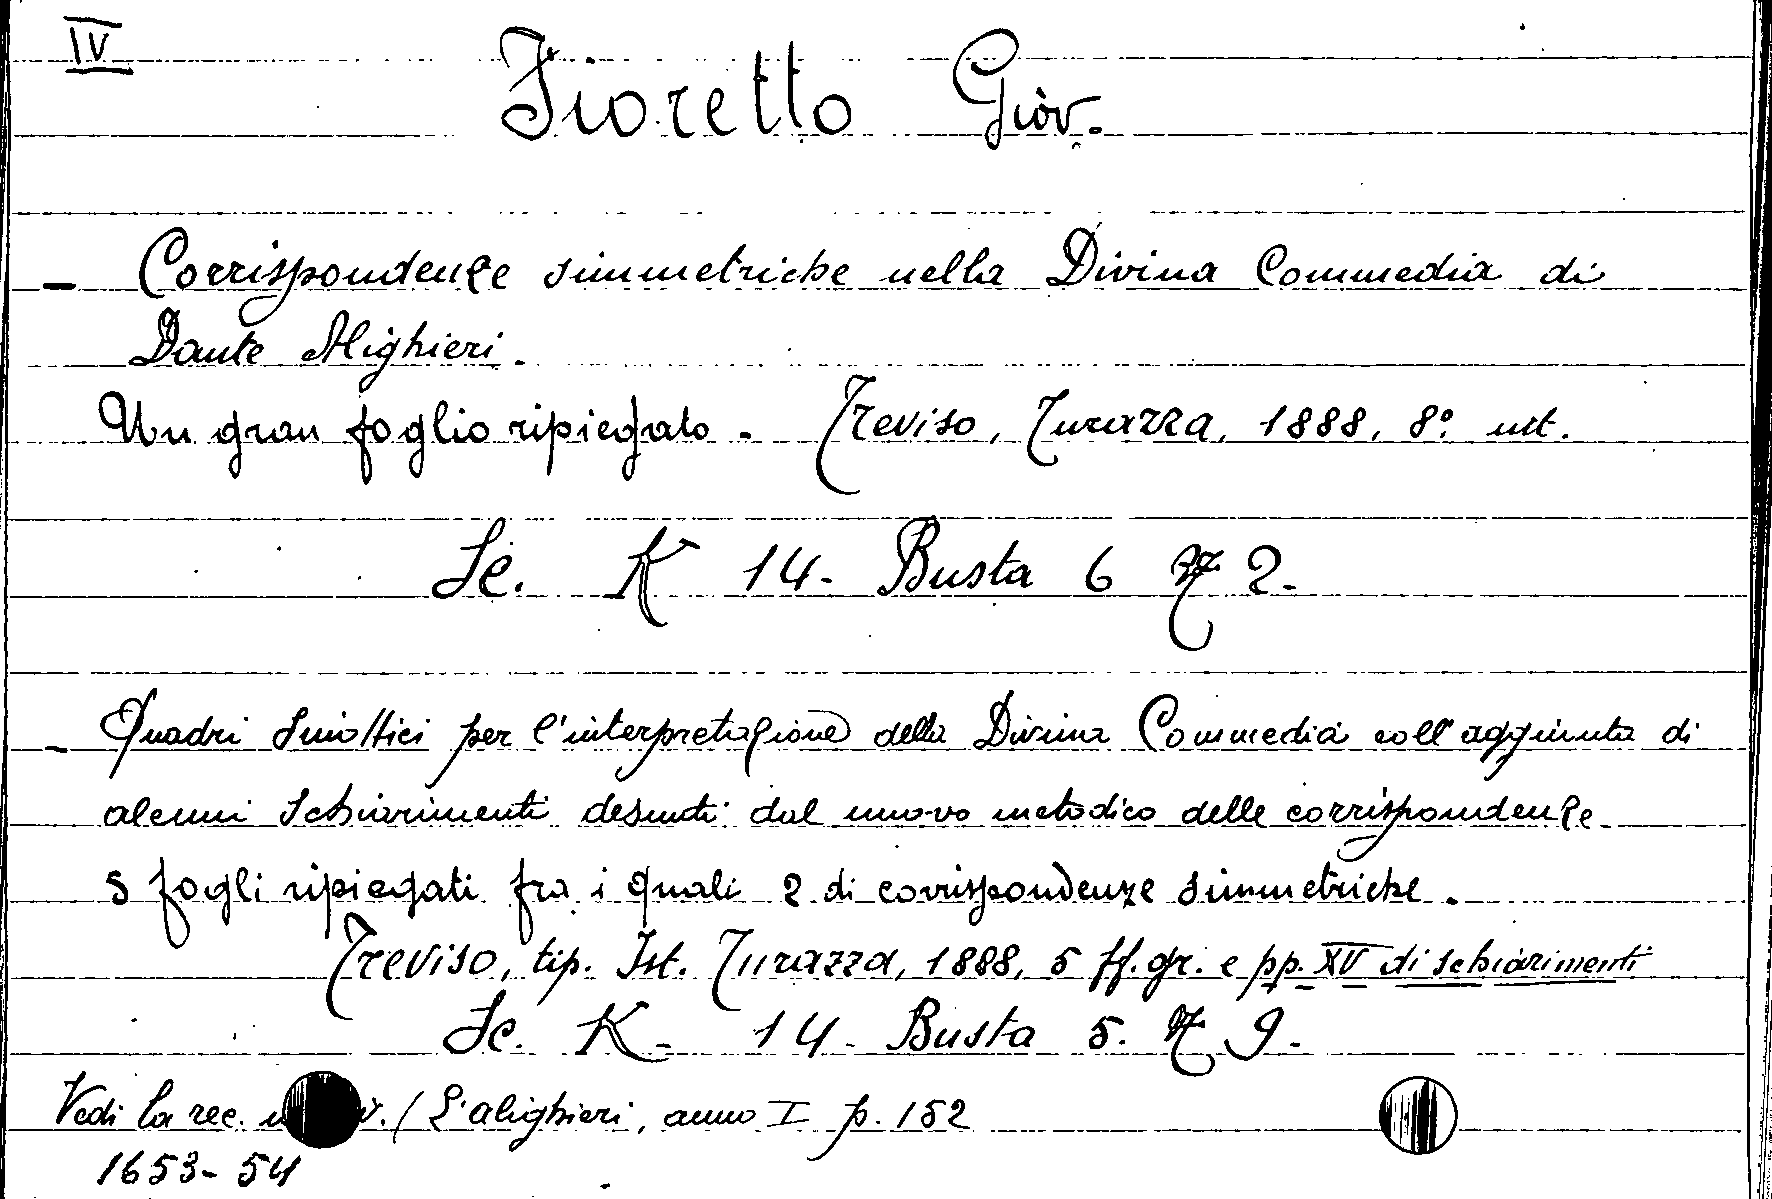 IV
Fioretto Giov.
- Corrispondenze simmetriche nella Divina Commedia di
Dante Alighieri.
Un gran foglio ripiegato. Treviso, Turazza, 1888, 8°. int.
Sc. K 14. Busta 6 N 2.
- Quadri Sinottici per l'interpretazione della Divina Commedia coll'aggiunta di
alcuni schiarimenti desunti dal nuovo metodico delle corrispondenze
5 fogli ripiegati fra i quali 2 di corrispondenze simmetriche.
Treviso, tip. Ist. Turazza, 1888, 5 ff. gr. e pp. XV di schiarimenti
Sc. K. 14. Busta 5. N 9.
Vedi la rec. L'alighieri, anno I p. 152
1653-54